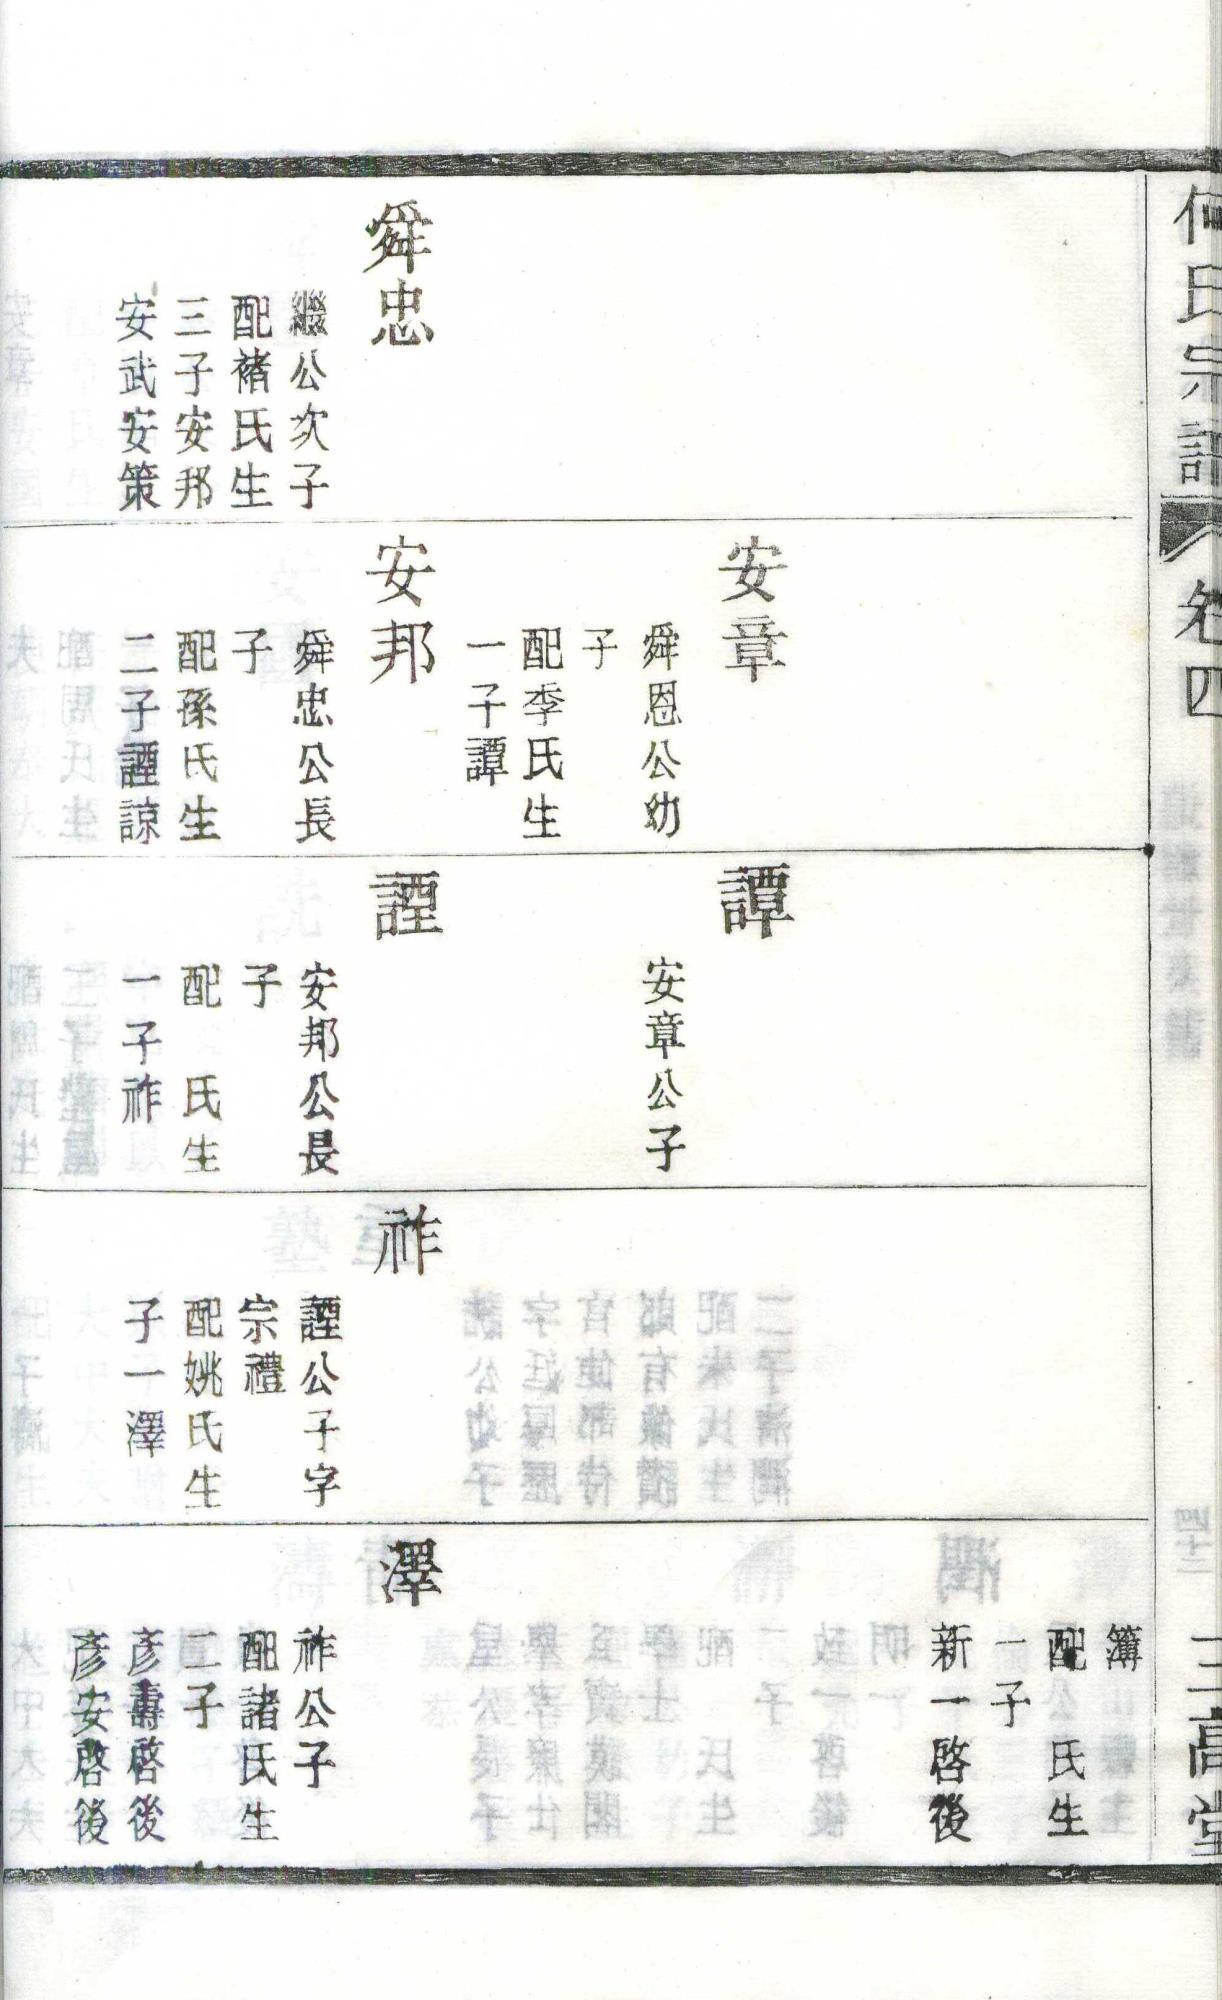 何氏宗譜
卷四
三高堂
舜忠
繼公次子
配褚氏生
三子安邦
安武安策
安章
舜恩公幼
子
配李氏生
一子譚
安邦
舜忠公長
子
配孫氏生
二子諲諒
譚
安章公子
諲
安邦公長
子
配　氏生
一子祚
祚
諲公子字
宗禮
配姚氏生
子一澤
簿
配　氏生
一子
新一啓後
澤
祚公子
配諸氏生
二子
彥壽啓後
彥安啓後